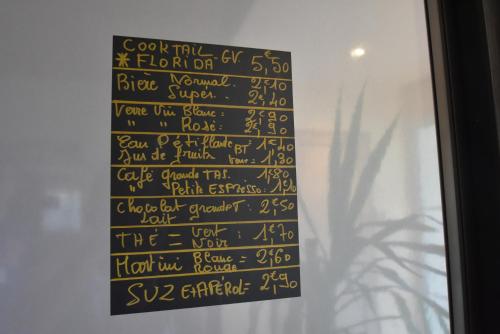 COCKTAIL GV. 5,50
* FLORIDA
Bière Normal. 2€10
Supér. 2,40
Verre Vin Blanc: 2€90
" " Rosé: 2€90
Eau Pétillante BT 1€40
Jus de fruits Verre: 1,30
Café grande TAS. 1,80
" Petite ESPresso: 1,10
Chocolat grande T: 2,50
Lait
THÉ = Vert : 1€70
Noir
Martini Blanc = 2€60
Rouge
SUZ et APÉROL= 2€90